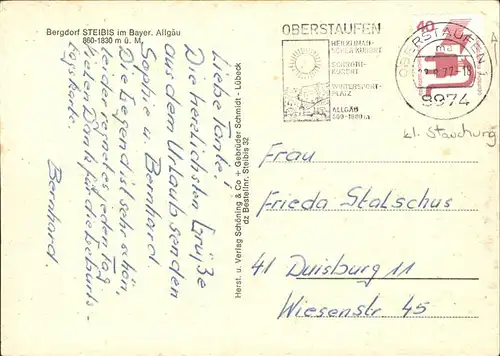 Bergdorf STEIBIS im Bayer. Allgäu
860-1830 m ü. M.
Liebe Tante.
Die herzlichsten Grüße
aus dem Urlaub senden
Sophie u. Bernhard.
Die Gegend ist sehr schön,
leider regnet es jeden Tag
Vielen Dank für die Geburts-
tagskarte.
Bernhard.
Herst. u. Verlag Schöning & Co + Gebrüder Schmidt - Lübeck
dz Bestellnr. Steibis 32
OBERSTAUFEN
HEILKLIMATI-
SCHER KURORT
SCHROTH-
KURORT
WINTERSPORT-
PLATZ
ALLGÄU
40
OBERSTAUFEN 1
ma
8974
kl. Stauchung
Frau
Frieda Stalschus
41 Duisburg 11
Wiesenstr. 45